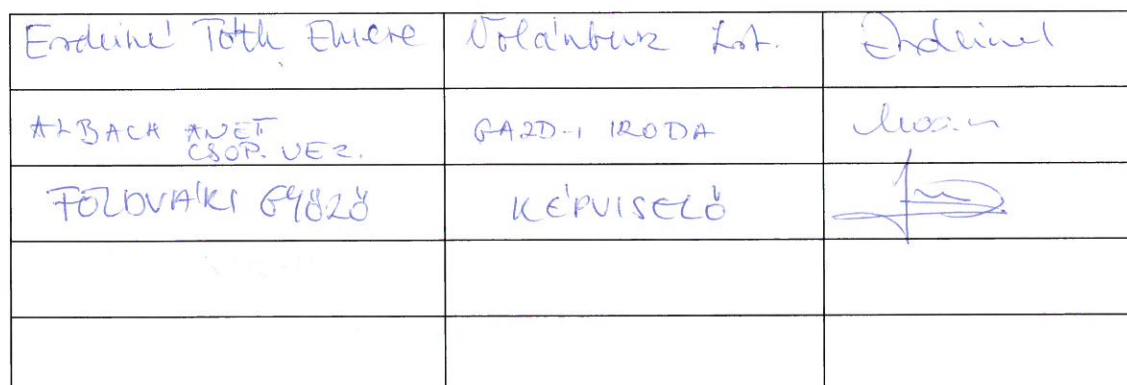 Erdeiné Tóth Emese
Volánbusz Zrt.
Erdeiné
ALBACH ANETT
CSOP. VEZ.
GAZD-I IRODA
FÖLDVÁRI GYŐZŐ
KÉPVISELŐ